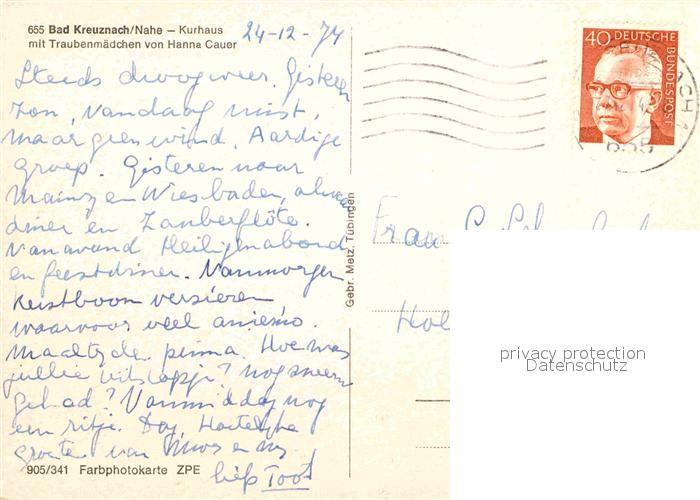 655 Bad Kreuznach/Nahe – Kurhaus
mit Traubenmädchen von Hanna Cauer
24-12-74
Steeds droog weer. Gisteren
zon, vandaag mist,
maar geen wind. Aardige
groep. Gisteren naar
Mainz en Wiesbaden,
diner en Zauberflöte.
Vanavond Heiligenabend
en feestdiner. Vanmorgen
kerstboom versieren,
waarvoor veel animo.
Maaltijden prima. Hoe was
jullie uitstapje? nog sneeuw
gehad? Vanmiddag nog
een ritje. Dag, Hartelijke
groeten van
liefs Toot
905/341 Farbphotokarte ZPE
Gebr. Metz, Tübingen
40 DEUTSCHE
BUNDESPOST
655
Hol
privacy protection
Datenschutz